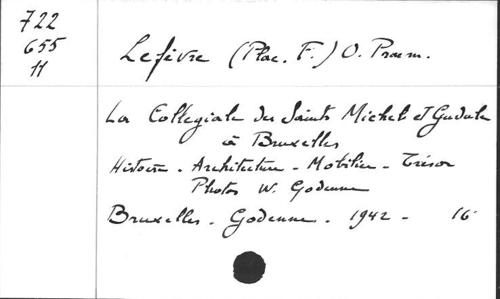 722
655
11
Lefèvre (Plac. F.) O. Praem.
La Collégiale des Saints Michel et Gudule
à Bruxelles
Histoire - Architecture - Mobilier - Trésor
Photos W. Godenne
Bruxelles - Godenne - 1942 - 16°